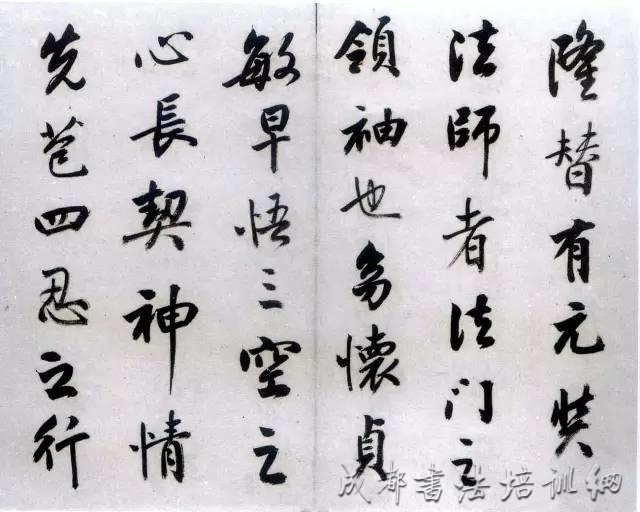 隆替有元奘
法師者法门之
領袖也幼懷貞
敏早悟三空之
心長契神情
先苞四忍之行
成都書法培训網